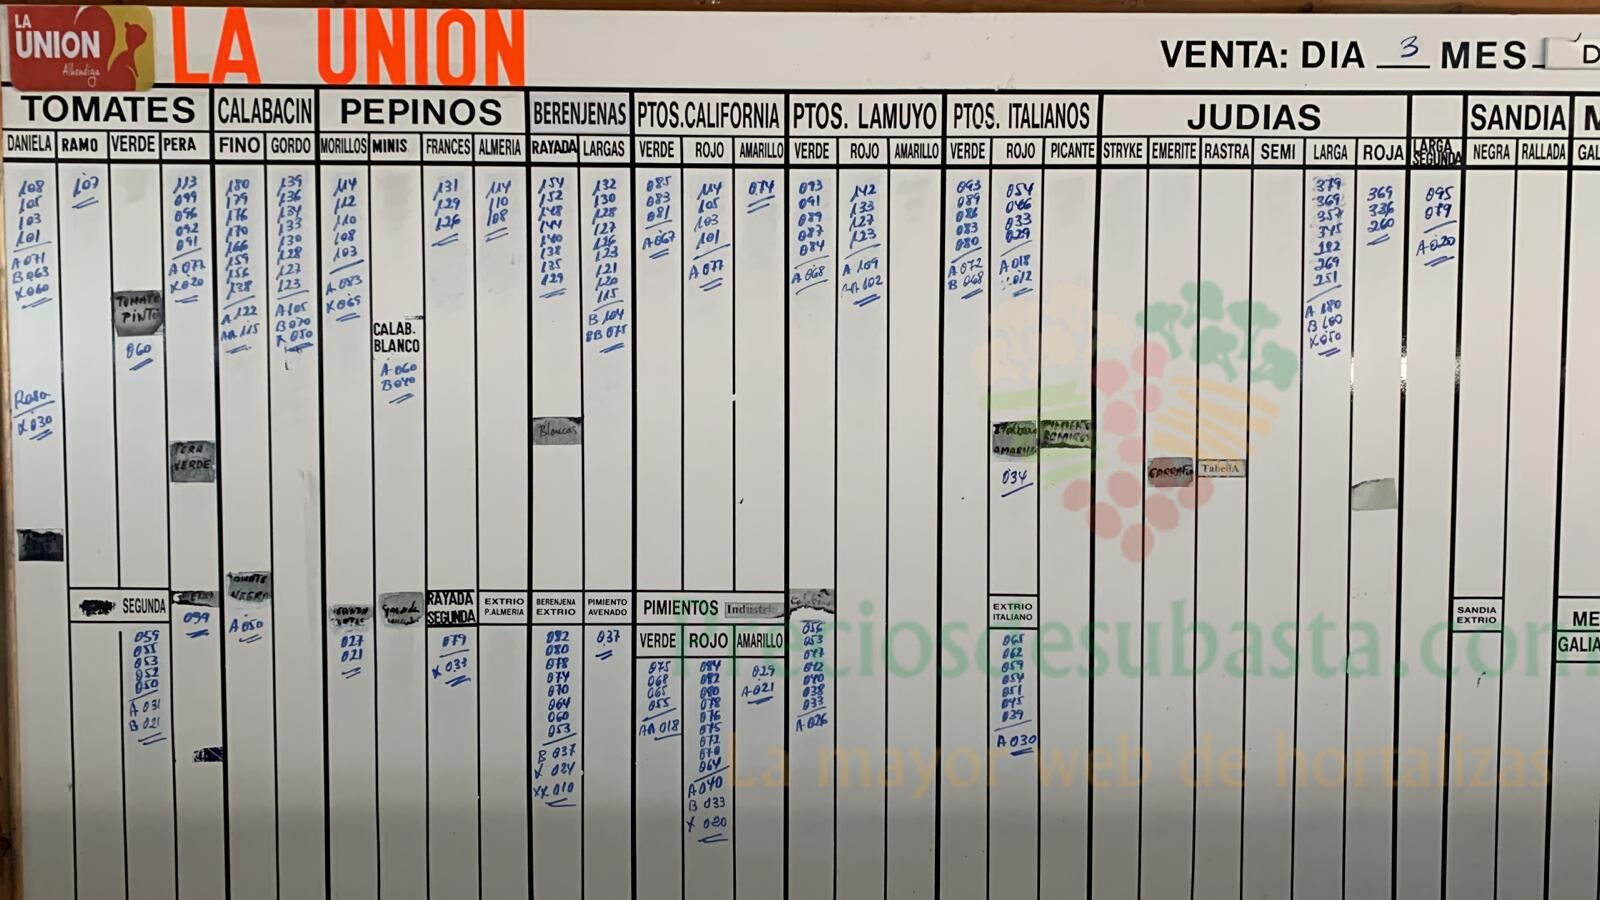 LA
UNION
Alhóndiga
LA UNION
VENTA: DIA 3 MES D
TOMATES CALABACIN PEPINOS BERENJENAS PTOS.CALIFORNIA PTOS. LAMUYO PTOS. ITALIANOS JUDIAS SANDIA M
DANIELA RAMO VERDE PERA FINO GORDO MORILLOS MINIS FRANCES ALMERIA RAYADA LARGAS VERDE ROJO AMARILLO VERDE ROJO AMARILLO VERDE ROJO PICANTE STRYKE EMERITE RASTRA SEMI LARGA ROJA LARGA SEGUNDA NEGRA RALLADA GAL
108
105
103
101
A 071
B 063
X 060
Rasa
X 030
107
TOMATE
PINTO
060
113
099
096
092
091
A 077
X 020
PERA
VERDE
180
179
176
170
166
159
156
138
A 122
AA 115
139
136
134
133
130
128
127
123
A 105
B 070
X 050
114
112
110
108
103
A 083
X 065
CALAB.
BLANCO
A 060
B 040
131
129
126
114
110
108
154
152
148
144
140
138
135
129
Blancas
132
130
128
127
126
123
121
120
115
B 104
BB 075
085
083
081
A 067
114
105
103
101
A 077
074
093
091
089
087
084
A 068
142
133
127
123
A 109
AA 102
093
089
086
083
080
A 072
B 068
054
046
033
029
A 018
012
034
TabellA
379
369
357
345
269
251
A 180
B 100
X 050
369
336
260
095
079
A 020
SEGUNDA
059
055
053
052
050
A 031
B 021
099
TOMATE
NEGRA
A 050
027
021
RAYADA
SEGUNDA
079
X 037
EXTRIO
P.ALMERIA
BERENJENA
EXTRIO
082
080
078
074
070
064
060
053
B 037
X 024
XX 010
PIMIENTO
AVENADO
037
PIMIENTOS Industria
VERDE ROJO AMARILLO
075
068
065
055
AA 018
084
082
080
078
076
075
072
070
064
A 040
B 033
X 020
029
A 021
056
053
047
042
040
038
033
A 026
EXTRIO
ITALIANO
065
062
059
054
051
045
039
A 030
SANDIA
EXTRIO
ME
GALIA
Preciosdesubasta.com
La mayor web de hortalizas